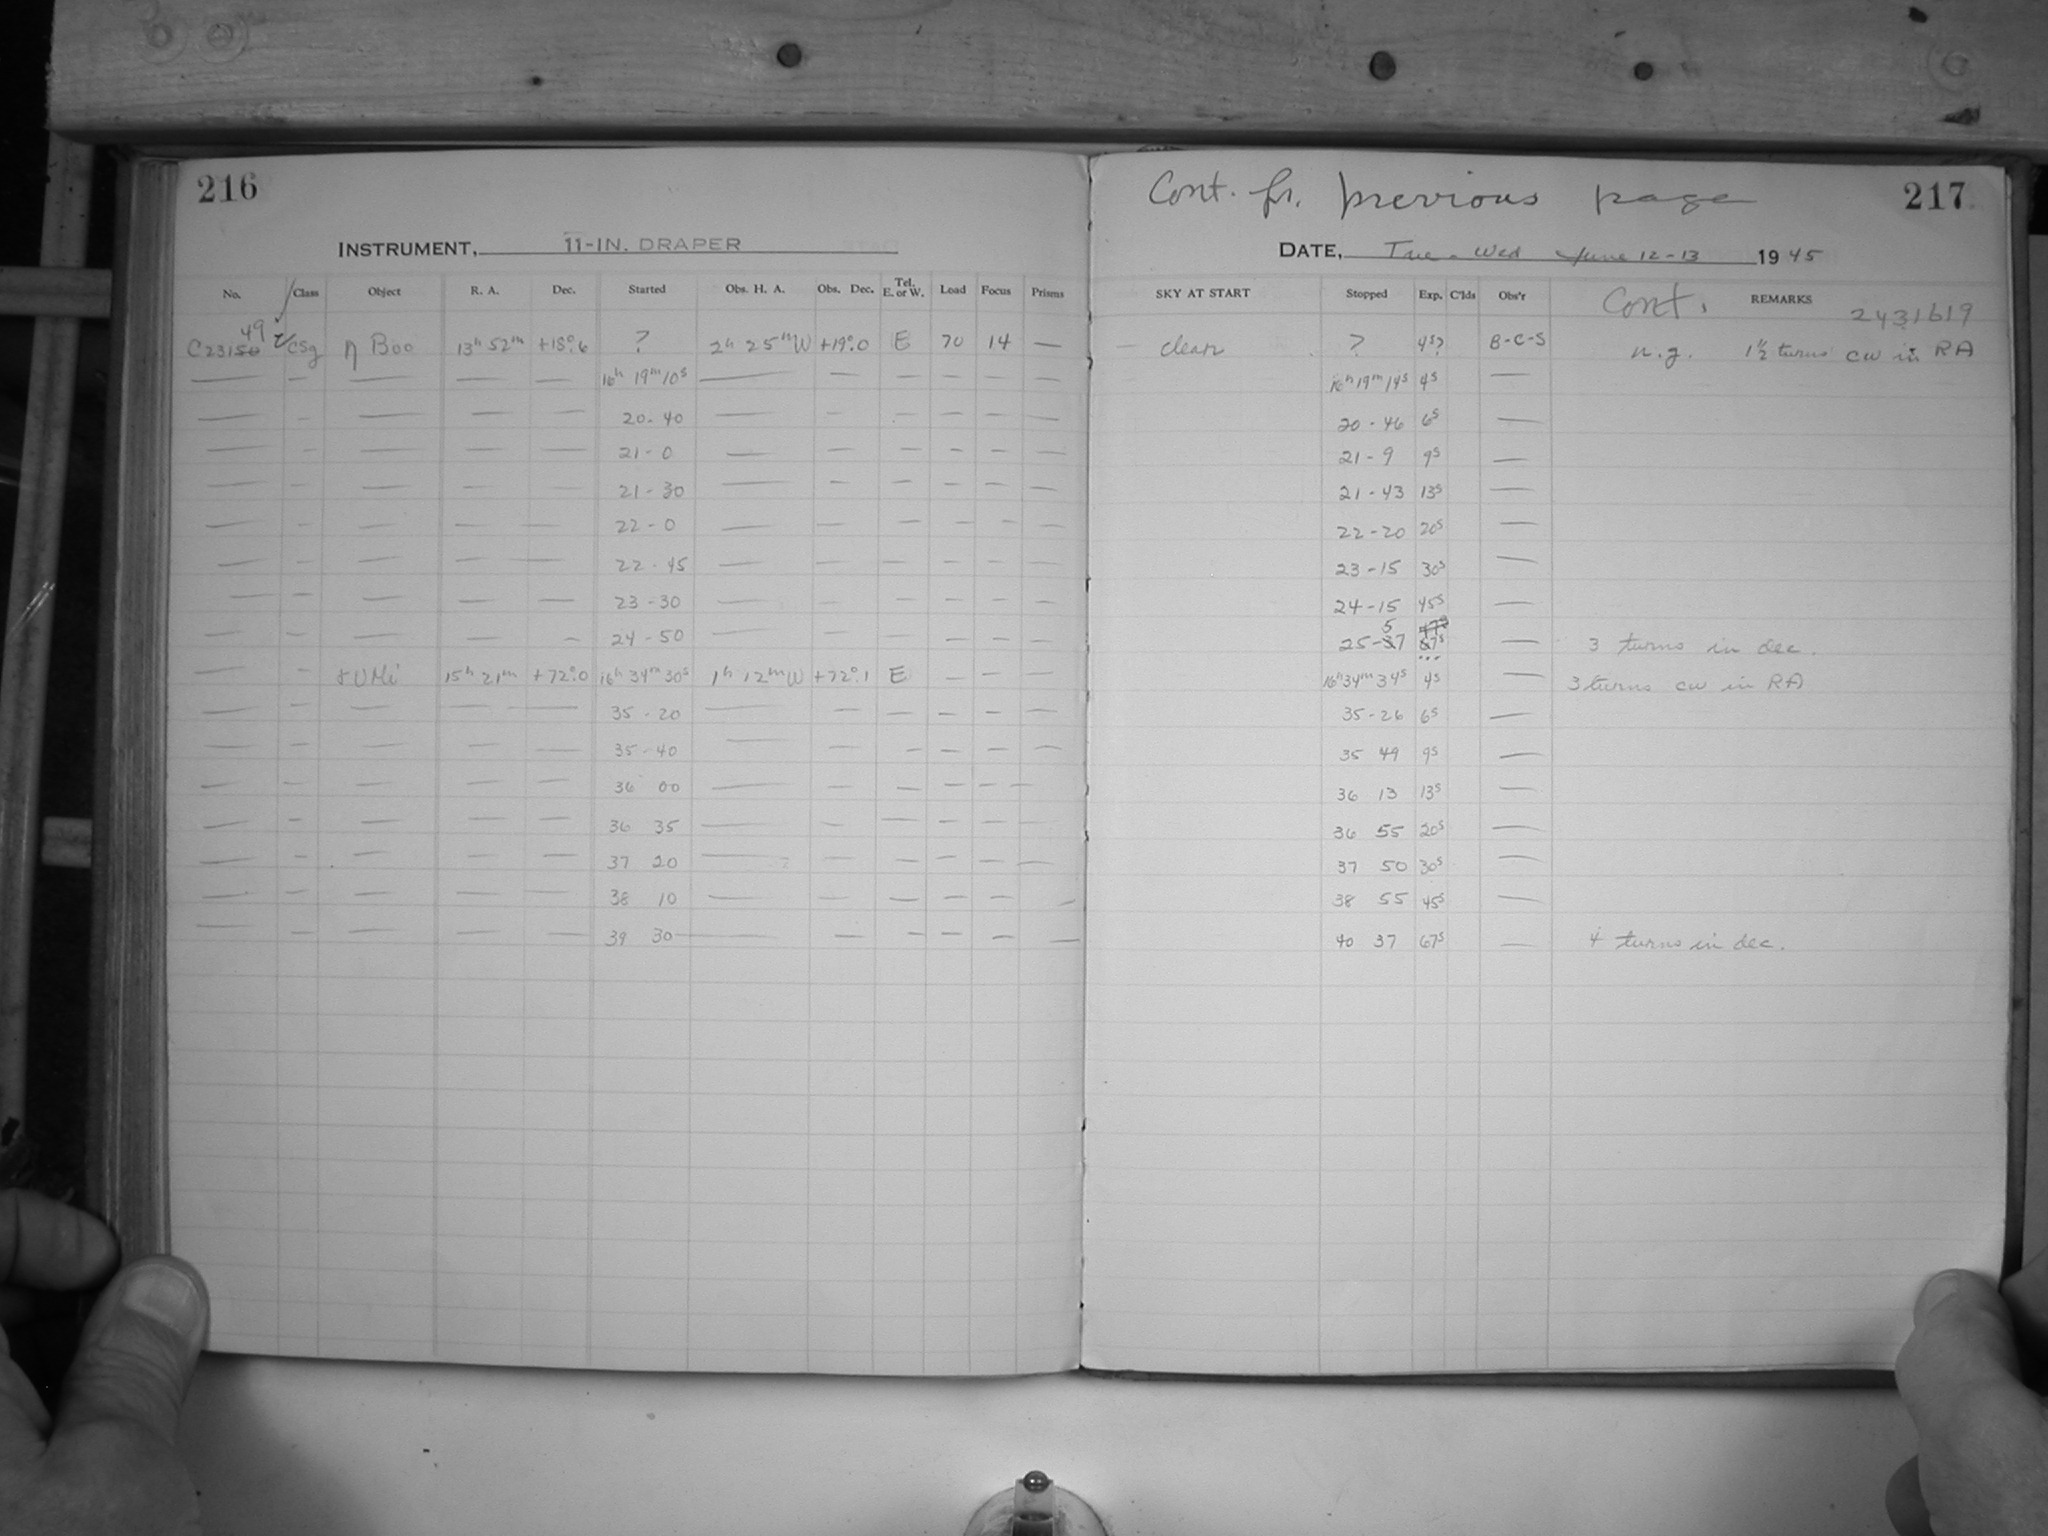 216
INSTRUMENT, 11-IN. DRAPER
No. Class Object R. A. Dec. Started Obs. H. A. Obs. Dec. Tel. E. or W. Load Focus Prisms
49
C23150 CSg η Boo 13h 52m +18°.6 ? 2h 25m W +19°.0 E 70 14 —
— — — — — 16h 19m 10s — — — — — —
— — — — — 20-40 — — — — — —
— — — — — 21-0 — — — — — —
— — — — — 21-30 — — — — — —
— — — — — 22-0 — — — — — —
— — — — — 22-45 — — — — — —
— — — — — 23-30 — — — — — —
— — — — — 24-50 — — — — — —
— — γ UMi 15h 21m +72°.0 16h 34m 30s 1h 12m W +72°.1 E — — —
— — — — — 35-20 — — — — — —
— — — — — 35-40 — — — — — —
— — — — — 36 00 — — — — — —
— — — — — 36 35 — — — — — —
— — — — — 37 20 — — — — — —
— — — — — 38 10 — — — — — —
— — — — — 39 30 — — — — — —
Cont. fr. previous page 217
DATE, Tue - Wed June 12-13 1945
SKY AT START Stopped Exp. C'lds Obs'r Cont. REMARKS
2431619
— clear ? 4s? B-C-S n.g. 1½ turns cw in RA
16h 19m 14s 4s —
20-46 6s —
21-9 9s —
21-43 13s —
22-20 20s —
23-15 30s —
24-15 45s —
25-57 67s — 3 turns in dec.
16h 34m 34s 4s — 3 turns cw in RA
35-26 6s —
35 49 9s —
36 13 13s —
36 55 20s —
37 50 30s —
38 55 45s —
40 37 67s — 4 turns in dec.